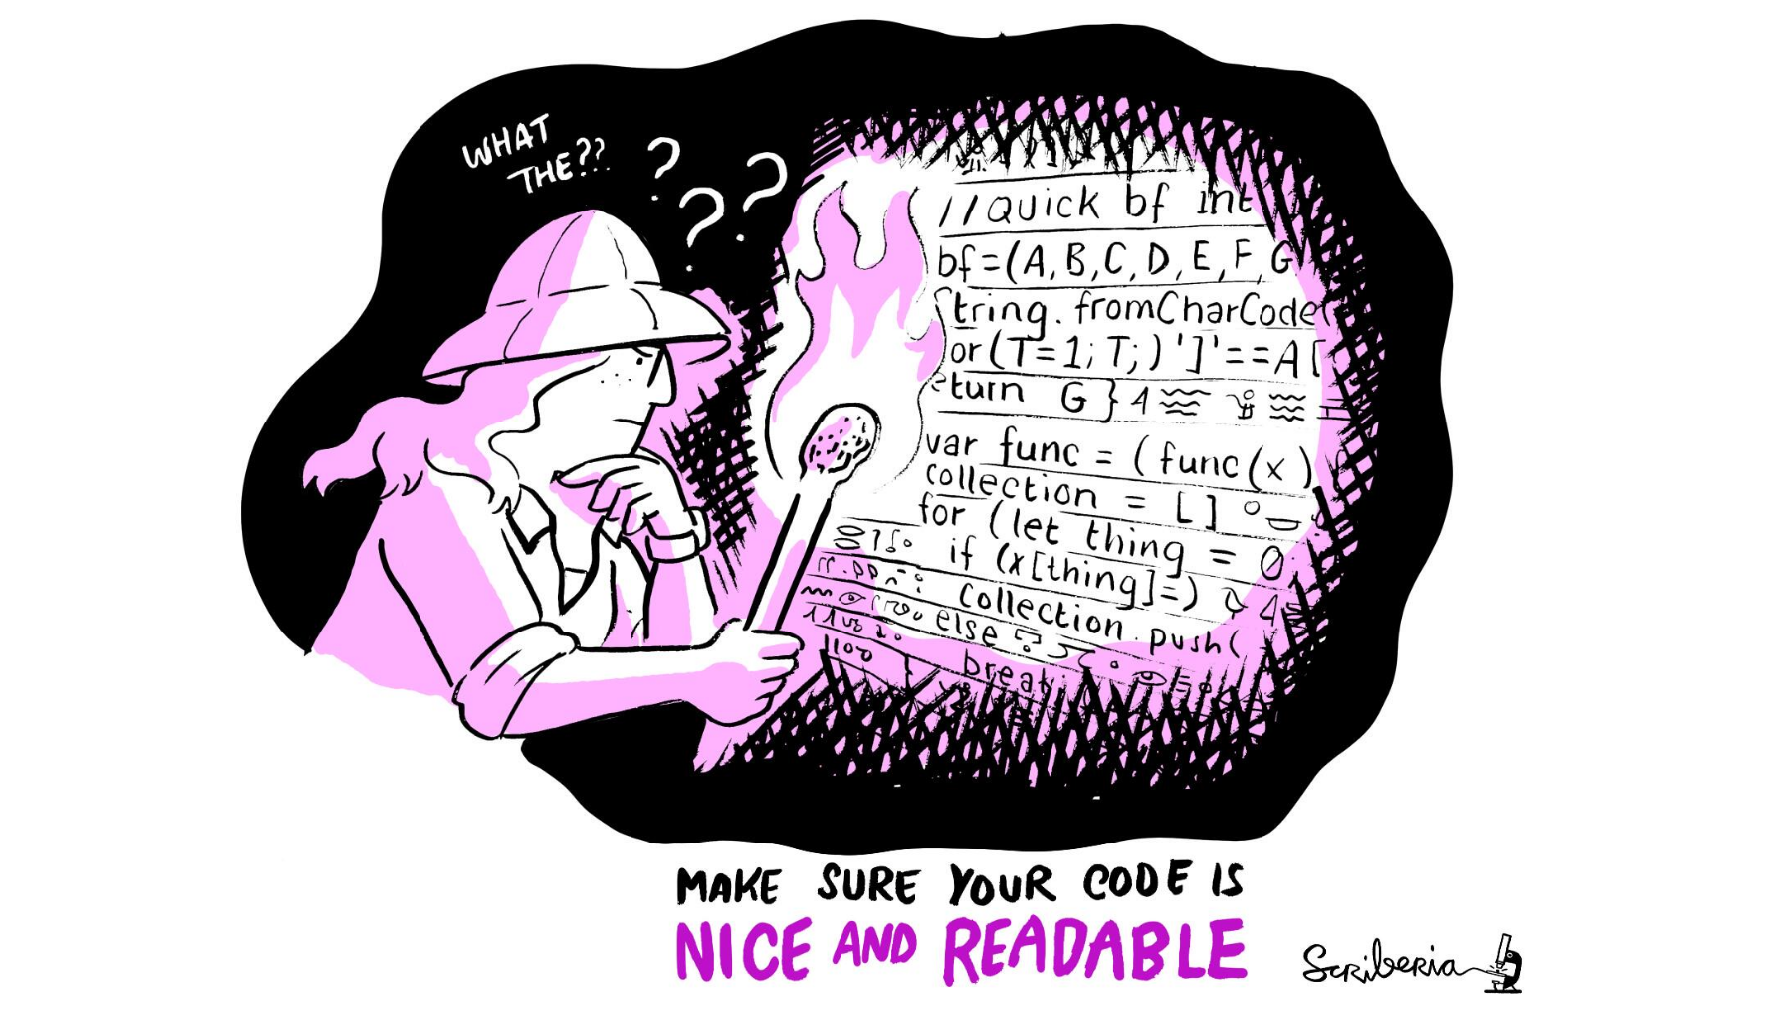 WHAT
THE??
? ? ?
//QUICK bf int
bf=(A,B,C,D,E,F,G
String.fromCharCode(
or(T=1;T;)']'==A[
eturn G}
var func = (func(x)
collection = []
for (let thing = 0
if (x[thing]=)
collection.push(
else
break
MAKE SURE YOUR CODE IS
NICE AND READABLE
Scriberia